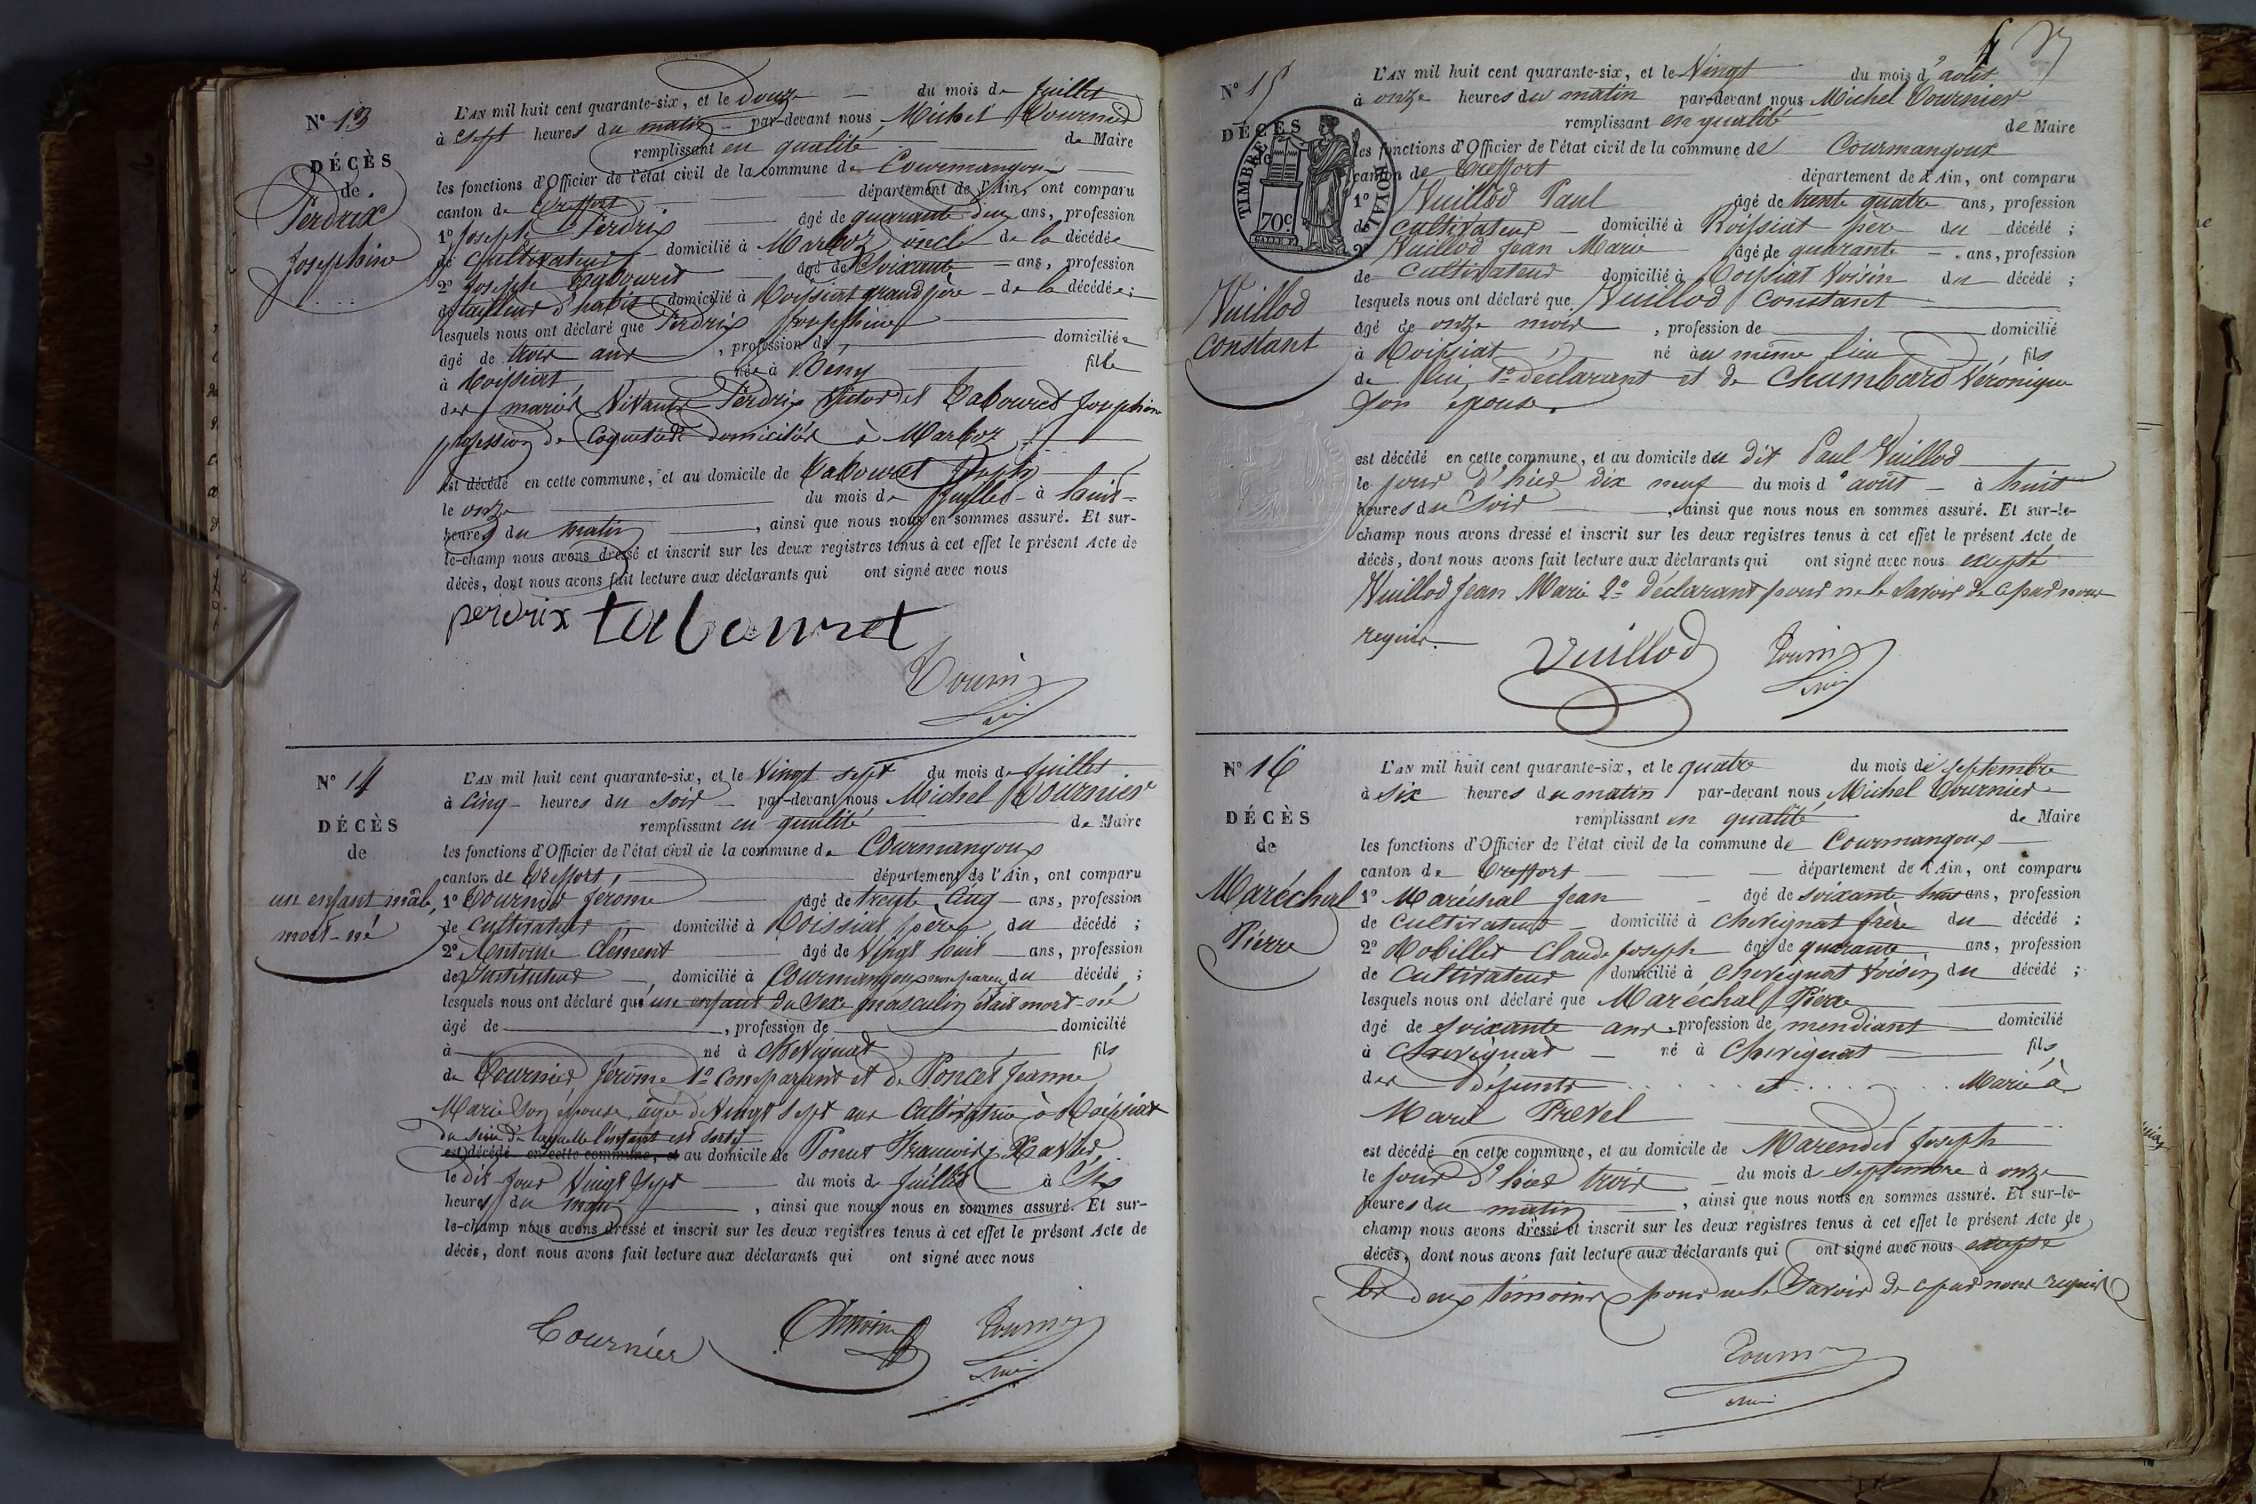 N° 13
DÉCÈS
de
Perdrix
Josephine
L'AN mil huit cent quarante-six, et le douze du mois de Juillet
à sept heures du matin par-devant nous Michel Tournier
remplissant en qualité de Maire
les fonctions d'Officier de l'état civil de la commune de Courmangoux
canton de Treffort département de l'Ain, ont comparu
1° Joseph Perdrix âgé de quarante deux ans, profession
de cultivateur domicilié à Marboz oncle de la décédée
2° Joseph Tabouret âgé de Soixante ans, profession
de tailleur d'habit domicilié à Roissiat grand père de la décédée;
lesquels nous ont déclaré que Perdrix Josephine
âgé de trois ans, profession de domiciliée
à Roissiat née à Bény fille
des mariés Vivants Perdrix Victor et Tabouret Josephine
profession de Coquetiers domiciliés à Marboz
est décédé en cette commune, et au domicile de Tabouret Joseph
le onze du mois de Juillet à huit
heures du matin, ainsi que nous nous en sommes assuré. Et sur-
le-champ nous avons dressé et inscrit sur les deux registres tenus à cet effet le présent Acte de
décès, dont nous avons fait lecture aux déclarants qui ont signé avec nous
perdrix tabouret
Tournier
N° 14
DÉCÈS
de
un enfant mâle,
mort-né
L'AN mil huit cent quarante-six, et le Vingt sept du mois de Juillet
à cinq heures du soir par-devant nous Michel Tournier
remplissant en qualité de Maire
les fonctions d'Officier de l'état civil de la commune de Courmangoux
canton de Treffort département de l'Ain, ont comparu
1° Tournier Jérôme âgé de trente cinq ans, profession
de cultivateur domicilié à Roissiat père du décédé;
2° Antoine Clément âgé de Vingt huit ans, profession
de Instituteur domicilié à Courmangoux non parent du décédé;
lesquels nous ont déclaré que un enfant du sexe masculin était mort-né
âgé de, profession de domicilié
à né à Chevignat fils
de Tournier Jérôme 1er comparant et de Poncet Jeanne
Marie son épouse, âgée de Vingt sept ans Cultivatrice à Roissiat
du sein de laquelle l'enfant est sorti
est décédé en cette commune, et au domicile de Poncet François Xavier,
le dit jour Vingt sept du mois de Juillet à Six
heures du matin, ainsi que nous nous en sommes assuré. Et sur-
le-champ nous avons dressé et inscrit sur les deux registres tenus à cet effet le présent Acte de
décès, dont nous avons fait lecture aux déclarants qui ont signé avec nous
Tournier Antoine Tournier
N° 15
DÉCÈS
TIMBRE ROYAL
70c
Vuillod
constant
L'AN mil huit cent quarante-six, et le Vingt du mois d'août
à onze heures du matin par-devant nous Michel Tournier
remplissant en qualité de Maire
les fonctions d'Officier de l'état civil de la commune de Courmangoux
canton de Treffort département de l'Ain, ont comparu
1° Vuillod Paul âgé de trente quatre ans, profession
de cultivateur domicilié à Roissiat père du décédé;
2° Vuillod Jean Marie âgé de quarante ans, profession
de Cultivateur domicilié à Roissiat voisin du décédé;
lesquels nous ont déclaré que Vuillod constant
âgé de onze mois, profession de domicilié
à Roissiat né au même lieu fils
de lui, 1er déclarant et de Chambard Véronique
son épouse.
est décédé en cette commune, et au domicile du dit Paul Vuillod
le jour d'hier dix neuf du mois d'août à huit
heures du Soir, ainsi que nous nous en sommes assuré. Et sur-le-
champ nous avons dressé et inscrit sur les deux registres tenus à cet effet le présent Acte de
décès, dont nous avons fait lecture aux déclarants qui ont signé avec nous excepté
Vuillod Jean Marie 2e déclarant pour ne le savoir de ce par nous
requis.
Vuillod Tournier
N° 16
DÉCÈS
de
Maréchal
Pierre
L'AN mil huit cent quarante-six, et le quatre du mois de septembre
à six heures du matin par-devant nous Michel Tournier
remplissant en qualité de Maire
les fonctions d'Officier de l'état civil de la commune de Courmangoux
canton de Treffort département de l'Ain, ont comparu
1° Maréchal Jean âgé de soixante huit ans, profession
de cultivateur domicilié à Chevignat frère du décédé;
2° Robillet Claude Joseph âgé de quarante ans, profession
de cultivateur domicilié à Chevignat voisin du décédé;
lesquels nous ont déclaré que Maréchal Pierre
âgé de soixante ans, profession de mendiant domicilié
à Chevignat né à Chevignat fils
des défunts et Marié à
Marie Prevel
est décédé en cette commune, et au domicile de Marendet Joseph
le jour d'hier trois du mois de septembre à onze
heures du matin, ainsi que nous nous en sommes assuré. Et sur-le-
champ nous avons dressé et inscrit sur les deux registres tenus à cet effet le présent Acte de
décès, dont nous avons fait lecture aux déclarants qui ont signé avec nous excepté
les deux témoins pour ne le savoir de ce par nous requis
Tournier